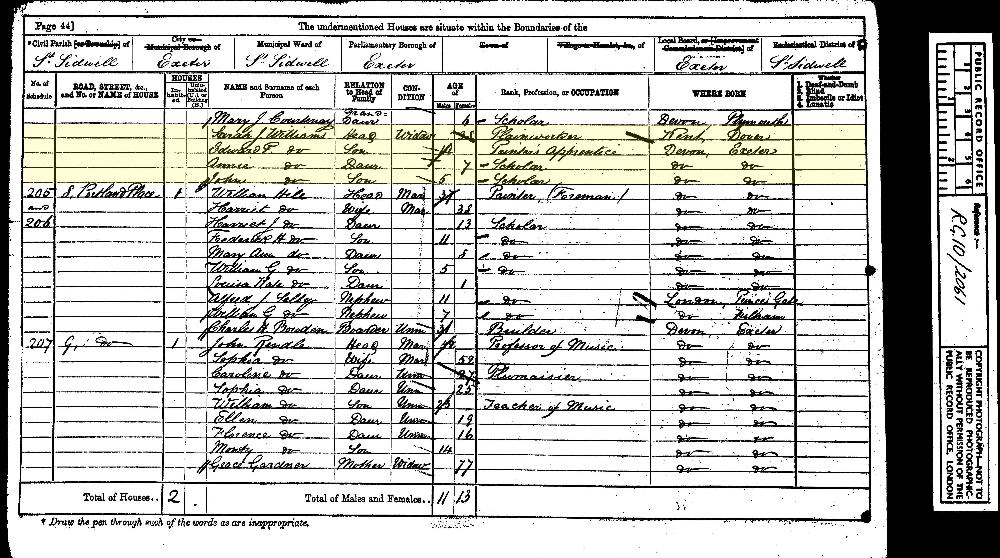 Page 44]
The undermentioned Houses are situate within the Boundaries of the
Civil Parish [or Township] of
City or Municipal Borough of
Municipal Ward of
Parliamentary Borough of
Town of
Village or Hamlet, &c., of
Local Board, or [Improvement Commissioners District] of
Ecclesiastical District of
St. Sidwell Exeter St. Sidwell Exeter Exeter St. Sidwell
No. of Schedule
ROAD, STREET, &c., and No. or NAME of HOUSE
HOUSES
Inhabited
Uninhabited (U.) or Building (B.)
NAME and Surname of each Person
RELATION to Head of Family
CONDITION
AGE of
Males Females
Rank, Profession, or OCCUPATION
WHERE BORN
Whether
1. Deaf-and-Dumb
2. Blind
3. Imbecile or Idiot
4. Lunatic
Mary J. Courtenay Grand-Daur 6 Scholar Devon, Plymouth
Sarah J. Williams Head Widow Plainworker Kent, Dover
Edward F. do Son 14 Apprentice Devon, Exeter
Annie do Daur 7 Scholar do do
John do Son 5 Scholar do do
205 8, Portland Place 1 William Hile Head Mar Painter (Foreman) do do
and Harriet do Wife Mar 38 do do
206 Harriet J do Daur 13 Scholar do do
Frederick H do Son 11 do do do
Mary Ann do Daur 8 do do do
William G. do Son 5 do do do
Louisa Kate do Daur 1 do do
Alfred J. Selley Nephew 11 do London,
William G. do Nephew 7 do do Fulham
Charles H. Bowden Boarder Unm Builder Devon Exeter
207 9, do 1 John Rendle Head Mar Professor of Music do do
Sophia do Wife Mar 52 do do
Caroline do Daur Unm 27 Plumaisier do do
Sophia do Daur Unm 25 do do
William do Son Unm 23 Teacher of Music do do
Ellen do Daur Unm 19 do do
Florence do Daur Unm 16 do do
do Son 14 do do
Grace Gardner Mother Widow 77 do do
Total of Houses.. 2 Total of Males and Females.. 11 13
* Draw the pen through such of the words as are inappropriate.
PUBLIC RECORD OFFICE
1 2 3 4 5 6
Reference:-
RG 10/2061
COPYRIGHT PHOTOGRAPH—NOT TO BE REPRODUCED PHOTOGRAPHICALLY WITHOUT PERMISSION OF THE PUBLIC RECORD OFFICE, LONDON